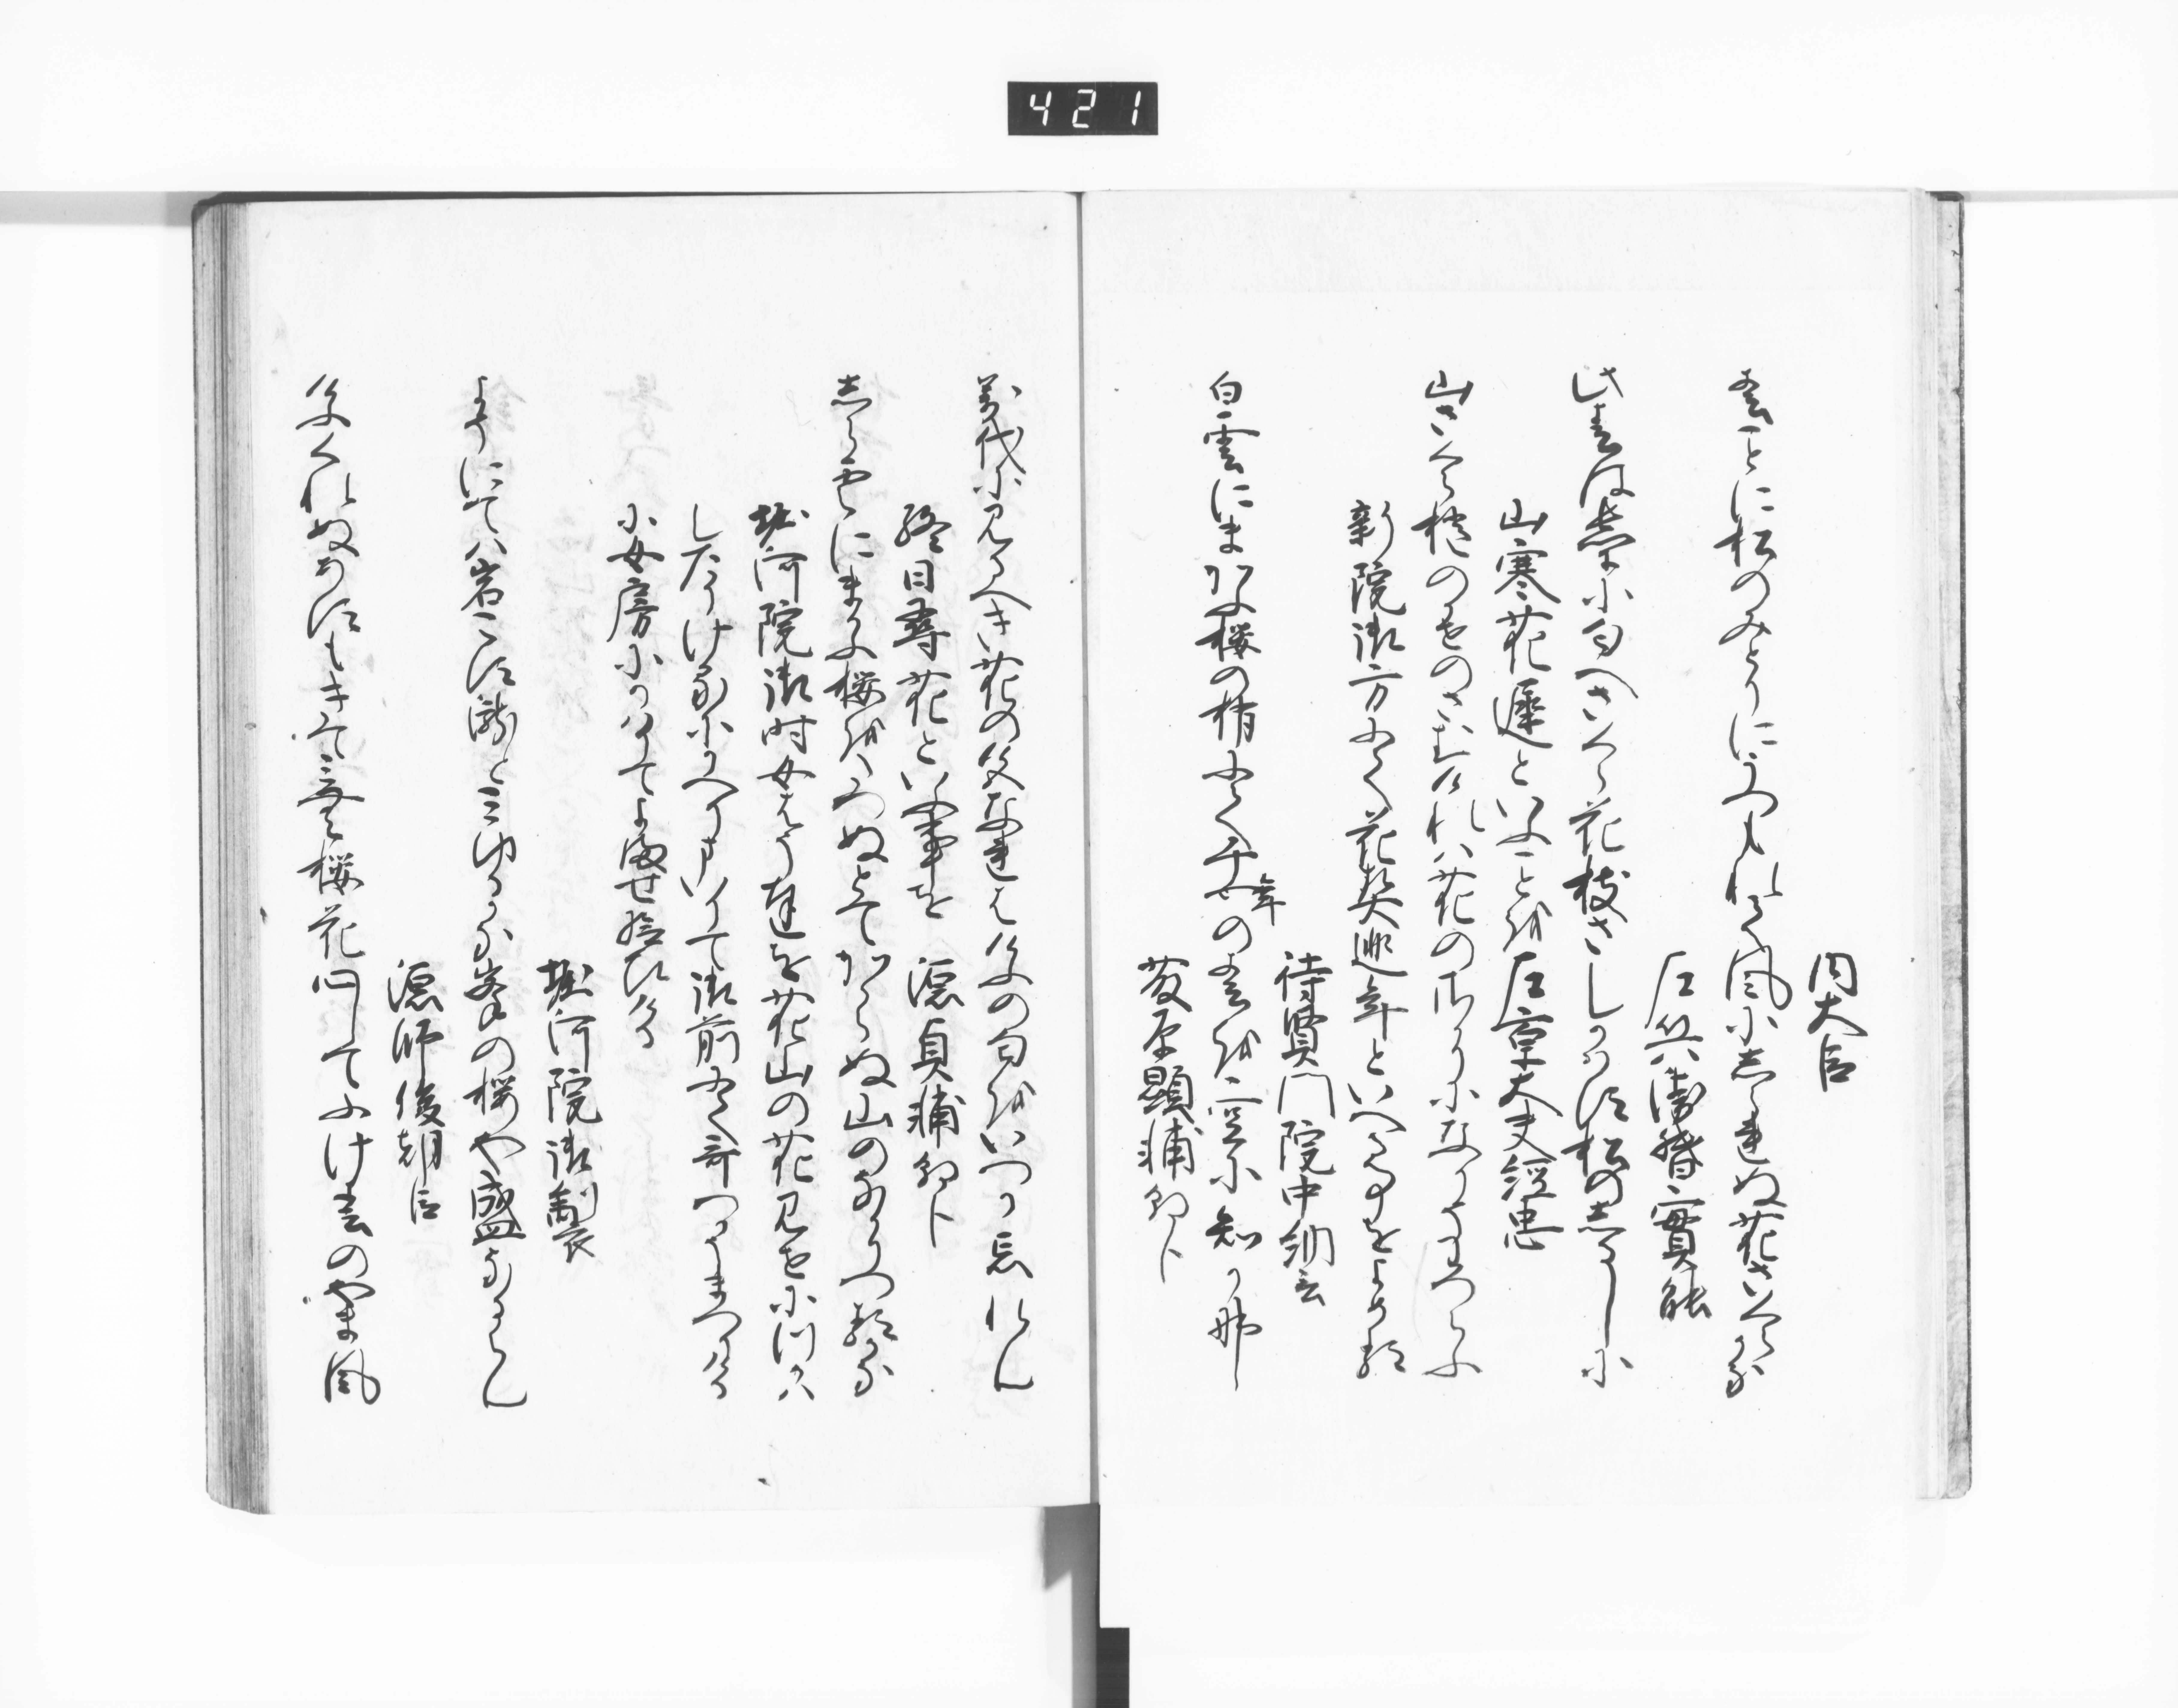 421
内大臣
春ことに松のみとりにうつもれて風にしられぬ花さくらかな
左兵衛督實能
此春は常に匂へさくら花枝さしかはす松のしるしに
山寒花遅といふことを左京大夫経忠
山さくら梢のをのさむけれは花のさかりになりそわつらふ
新院御方にて花契遐年といへる事をよめる
待賢門院中納言
白雲にまかふ桜の梢にて千世の春を空に知かな
年
藤原顕輔朝臣
万代に見るへき花の色なれと今の匂をいつか忘れん
終日尋花といふ事を 源貞輔朝臣
しら雲にまかふ桜をたつぬとてかゝらぬ山のなかりつるかな
堀河院御時女はう達を花山の花見せにつかは
したりけるにかへりまいりて御前にて哥つかうまつりける
に女房にかはりてよませ給ひける
堀河院御製
よそにては岩こす瀧とみゆるかな峯の桜や盛なるらん
源師俊朝臣
けふくれぬあすもきてみむ桜花心してふけ春のやま風